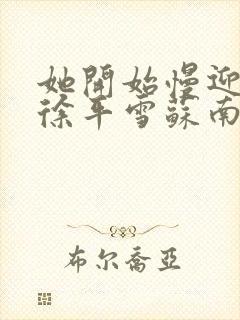 她開始慢迎
徐平雪蘇南
布尔喬亞